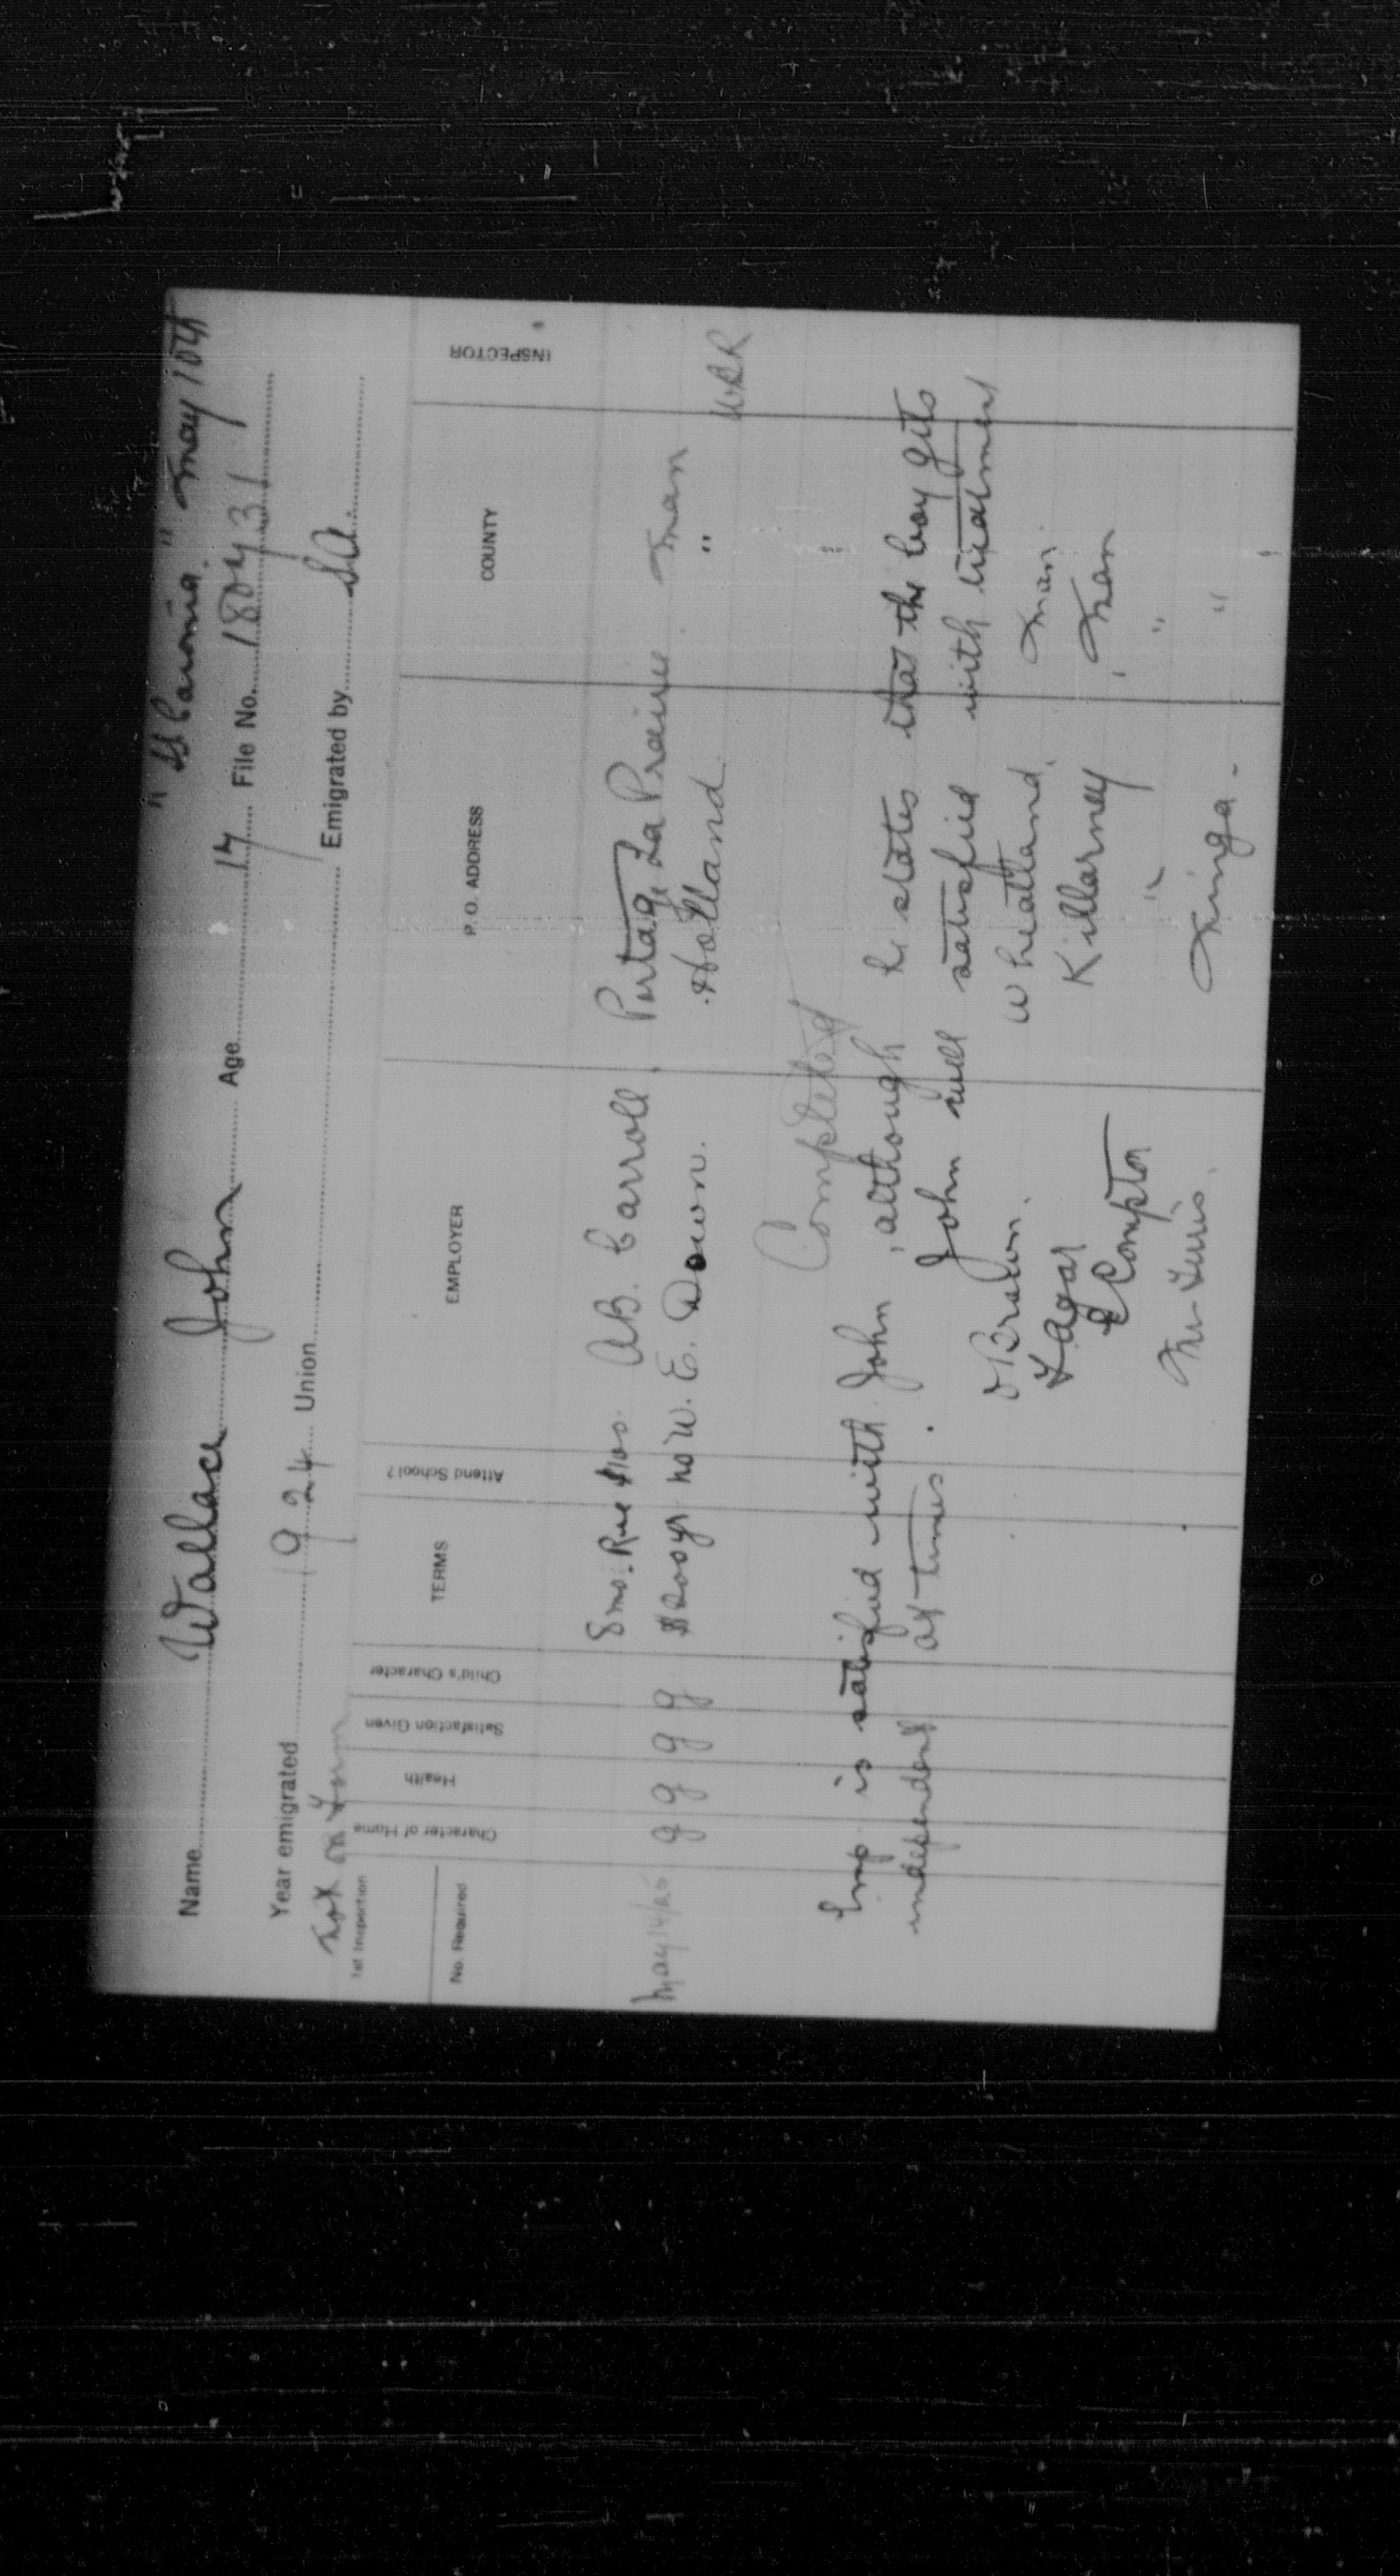 "SS Caronia" May 10th
Name Wallace John Age 17 File No. 180431
Year emigrated 1924 Union Emigrated by SA.
not on Form
1st Inspection
No. Required Character of Home Health Satisfaction Given Child's Character TERMS Attend School? EMPLOYER P.O. ADDRESS COUNTY INSPECTOR
8 mo. Rue $100. A.B. Carroll, Portage La Prairie Man
May 14/25 g g g g $200 yr no W. E. Down. Holland. "
WRR
Completed
Emp. is satisfied with John, although he states that the boy gets
independent at times. John well satisfied with treatment
Brown. Wheatland. Man.
Agar Killarney Man
Compton " "
Ninga - "